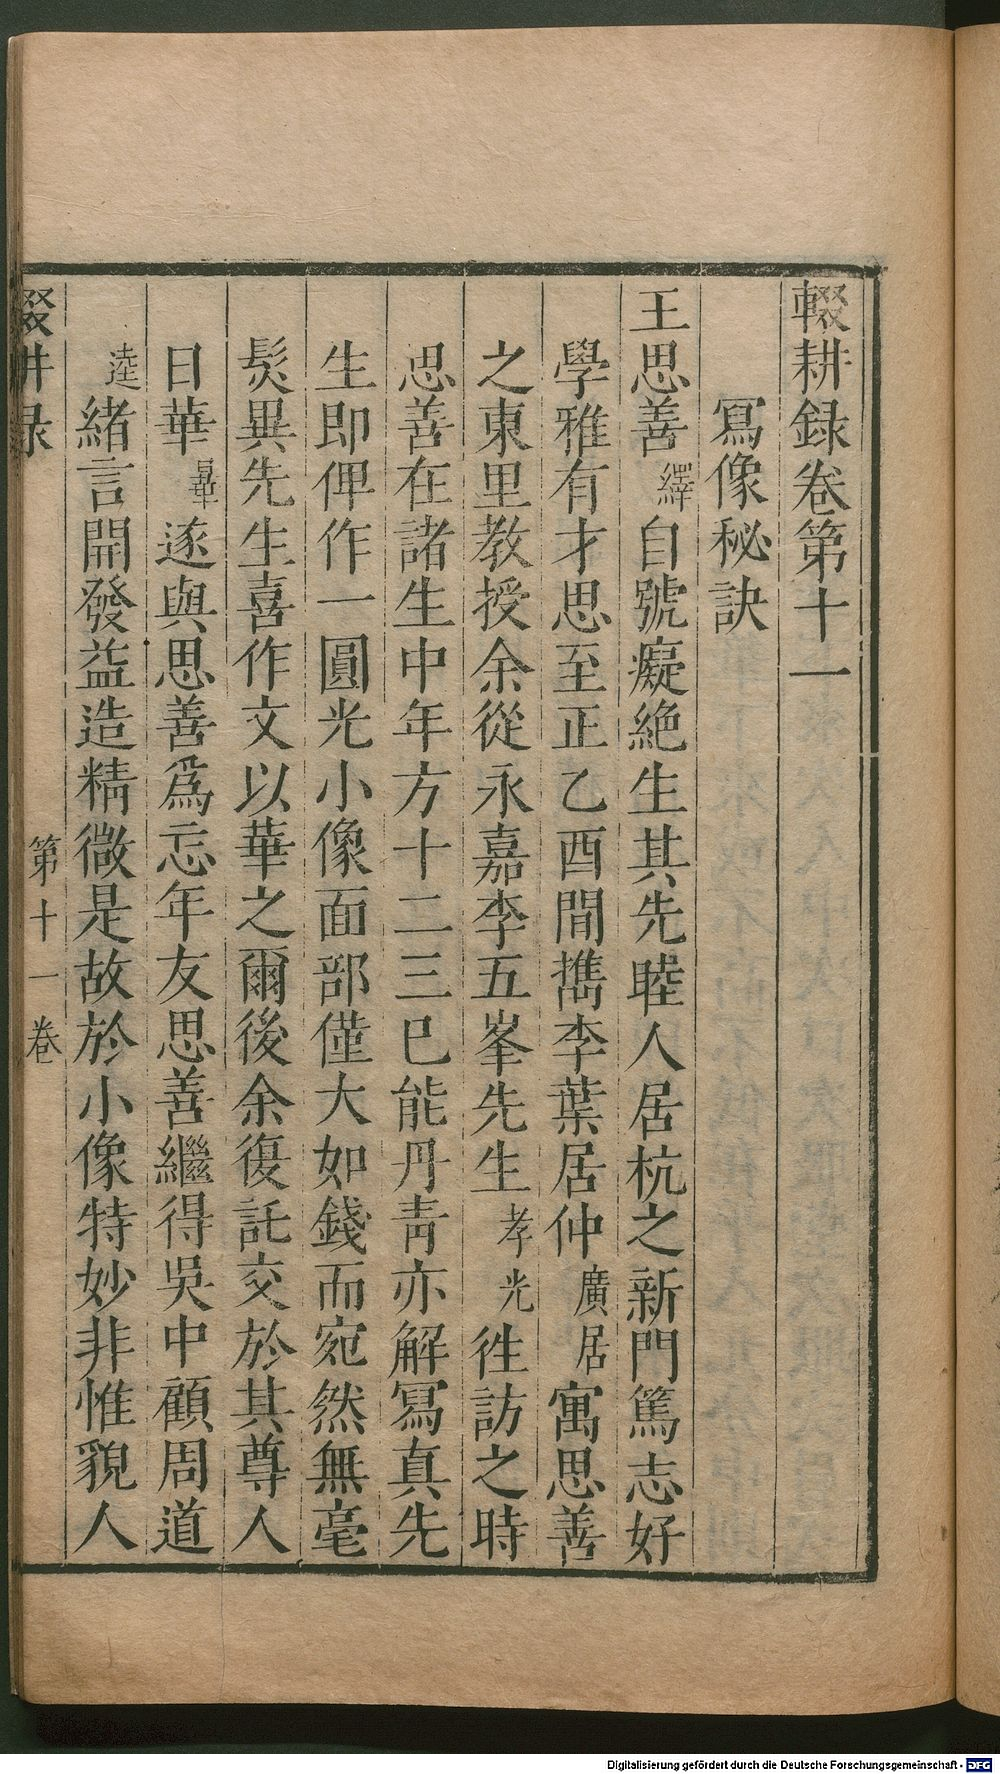 輟耕錄卷第十一
冩像秘訣
王思善繹自號癡絶生其先睦人居杭之新門篤志好
學雅有才思至正乙酉間檇李葉居仲廣居寓思善
之東里教授余從永嘉李五峯先生孝光徃訪之時
思善在諸生中年方十二三已能丹青亦解冩真先
生即俾作一圓光小像面部僅大如錢而宛然無毫
髮異先生喜作文以華之爾後余復託交於其尊人
日華曄遂與思善爲忘年友思善繼得吳中顧周道
逵緒言開發益造精微是故於小像特妙非惟貌人
輟耕录
第十一卷
Digitalisierung gefördert durch die Deutsche Forschungsgemeinschaft - DFG